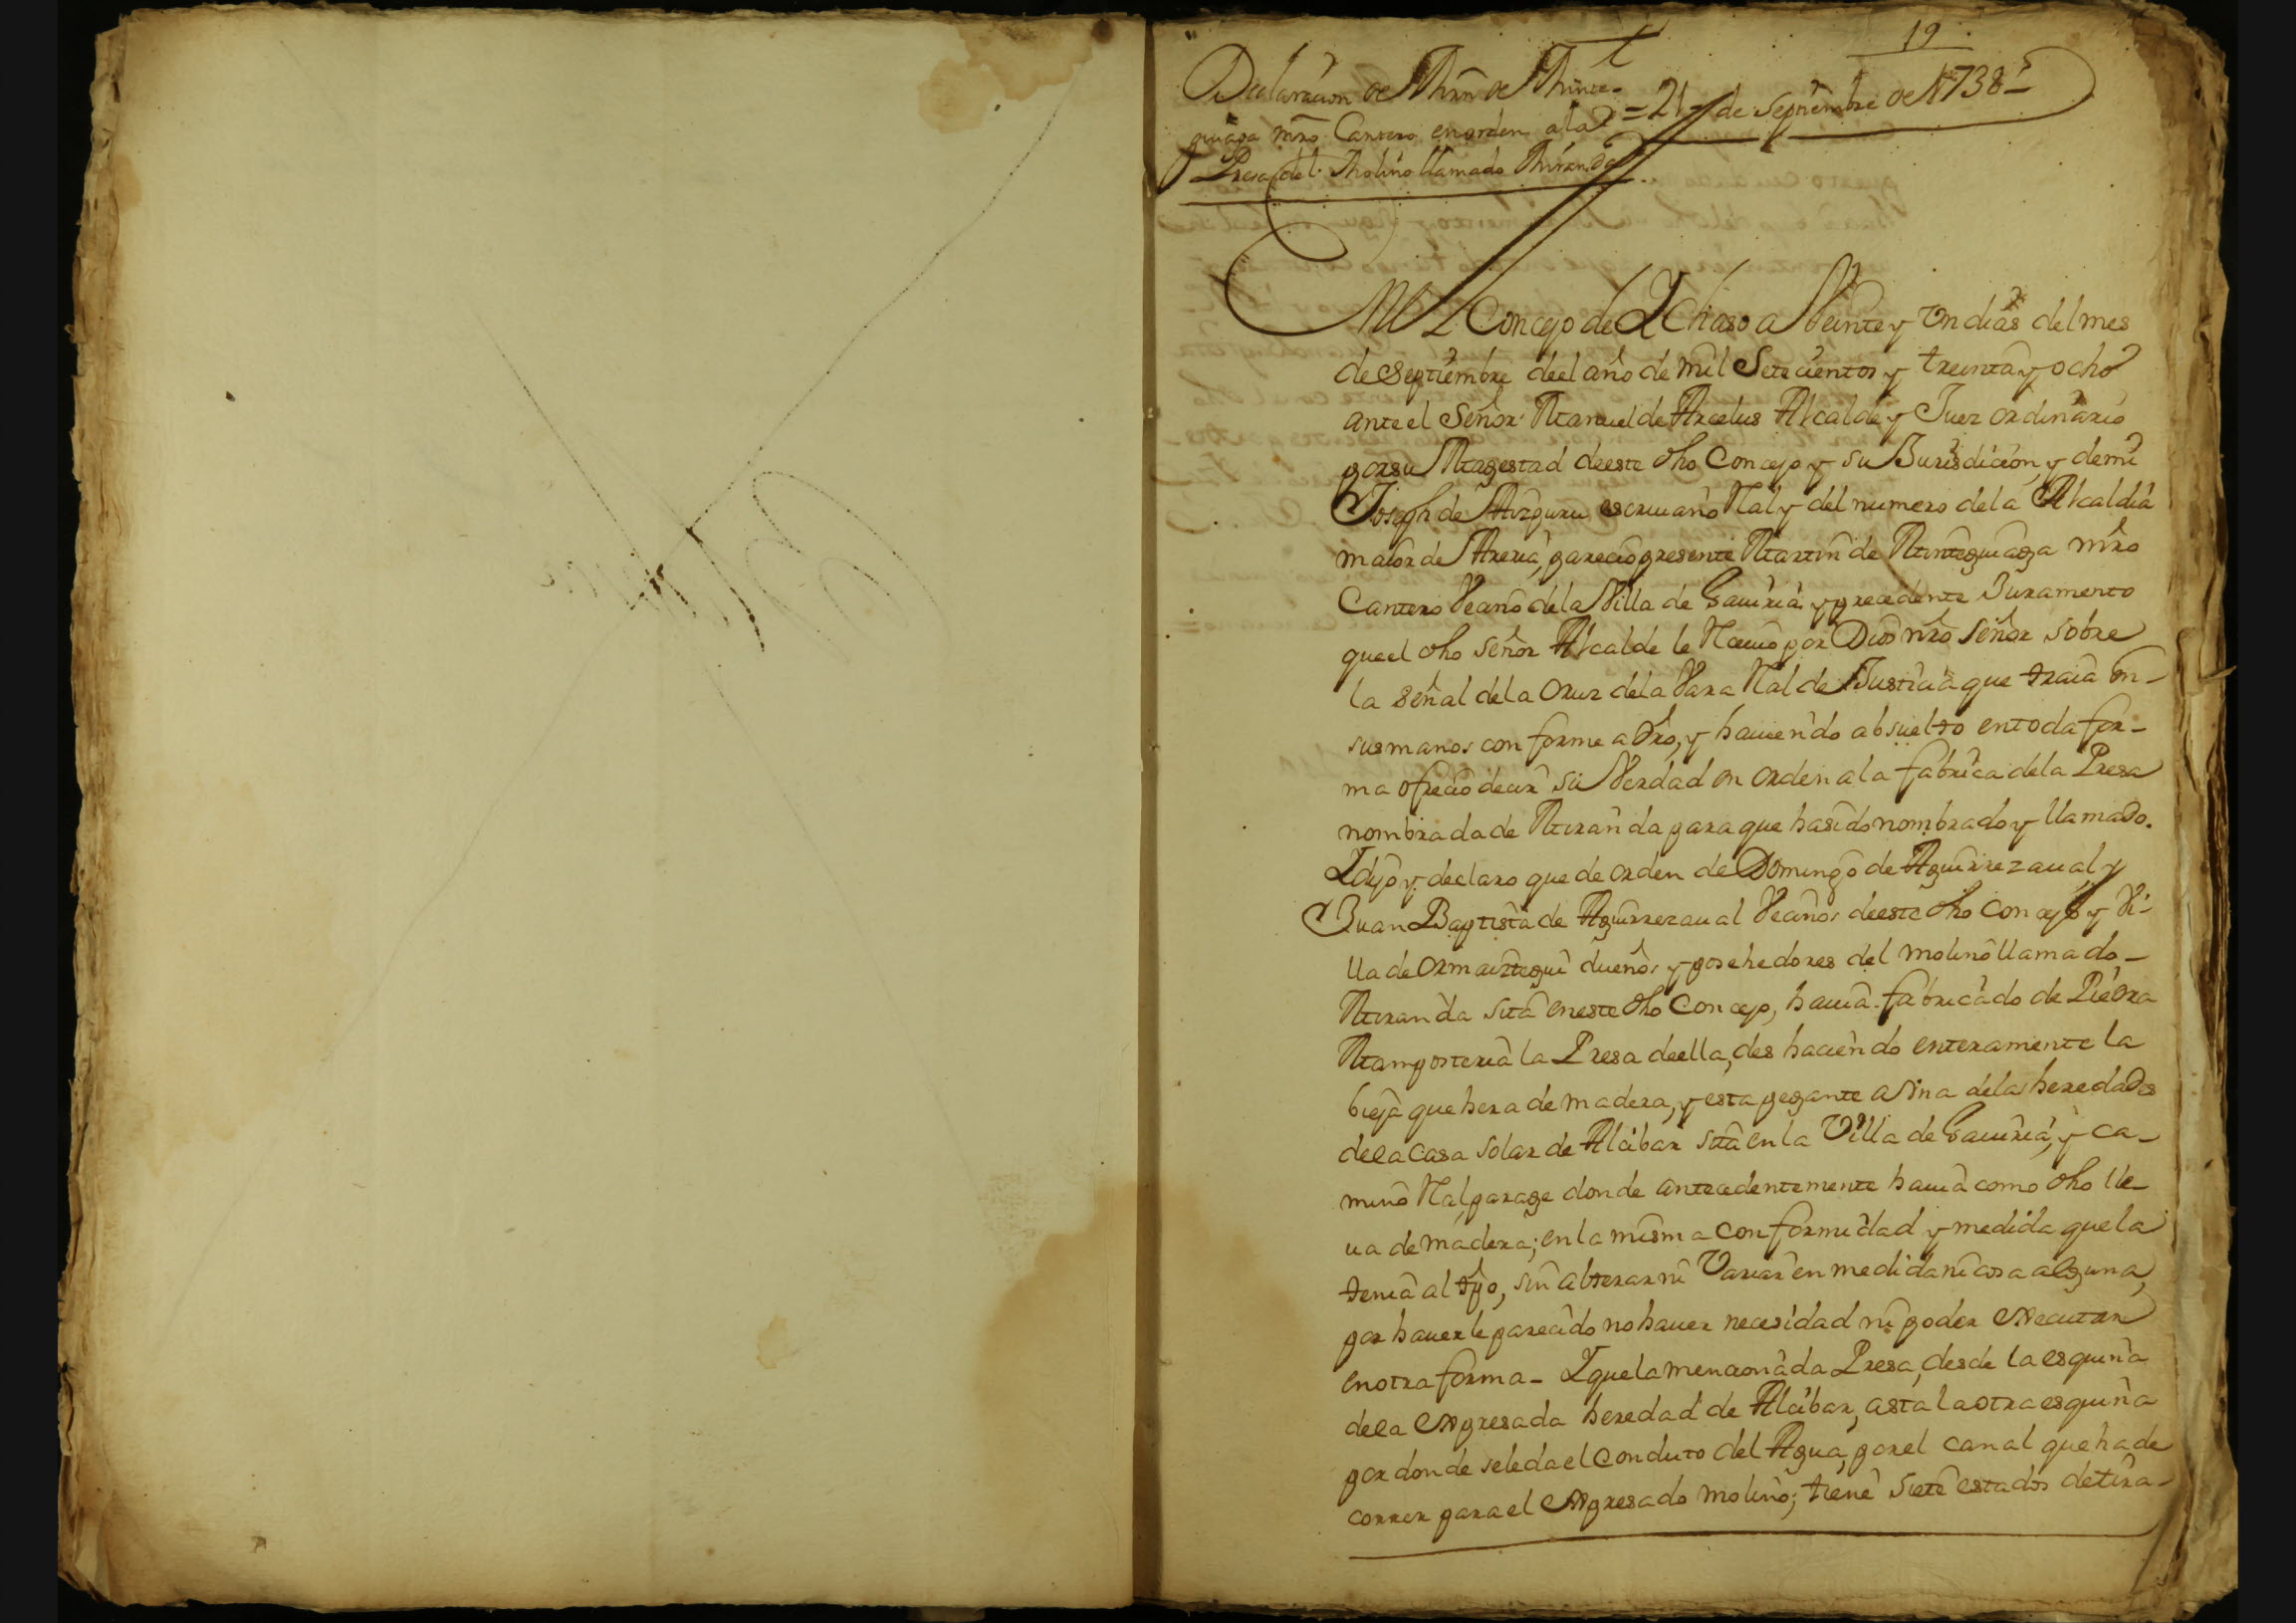 19
Declaracion de Mrn de Minte-
guiaga mro Cantero en orden a la = 21 de Septiembre de 1738
Presa del Molino llamado Miranda
En el Concejo de Ychaso a Veinte y Un dias del mes
de Septiembre deel año de mil Setecientos y treinta y ocho
ante el Señor Manuel de Arcelus Alcalde y Juez ordinario
por su Magestad deeste dho Concejo y su Jurisdicion, y de mi
Joseph de Aizpuru escriuano Ral y del numero de la Alcaldia
maior de Areria, parecio presente Martin de Minteguiaga mro
Cantero Vecino de la Villa de Gauiria y precedente Juramento
que el dho Señor Alcalde le Reciuio por Dios nro Señor sobre
la Señal de la Cruz de la Vara Ral de Justicia que traia en-
sus manos conforme a dro, y hauiendo absuelto en toda for-
ma ofrecio decir su Verdad en orden a la fabrica de la Presa
nombrada de Miranda para que ha sido nombrado y llamado.
Y dijo y declaro que de orden de Domingo de Aguirrezaual y
Juan Baptista de Aguirrezaual Vecinos deeste dho Concejo y Vi-
lla de Ormaiztegui dueños y posehedores del molino llamado-
Miranda sita en este dho Concejo, hauia fabricado de Piedra
Mamposteria la Presa deella, deshaciendo enteramente la
bieja que hera de madera, y esta pegante a Una de las heredades
de la Casa Solar de Alcibar sita en la Villa de Gauiria, y ca-
mino Ral, parage donde antecedentemente hauia como dho lle-
ua de madera; en la misma conformidad y medida que la
tenia al tpo, sin alterar ni Variar en medida ni cosa alguna,
por hauerle parecido no hauer necesidad ni poder executar
en otra forma - Y que la mencionada Presa, desde la esquina
de la expresada heredad de Alcibar, asta la otra esquina
por donde se le da el Conduto del Agua, por el canal que ha de
correr para el expresado molino; tiene Siete estados de tira-